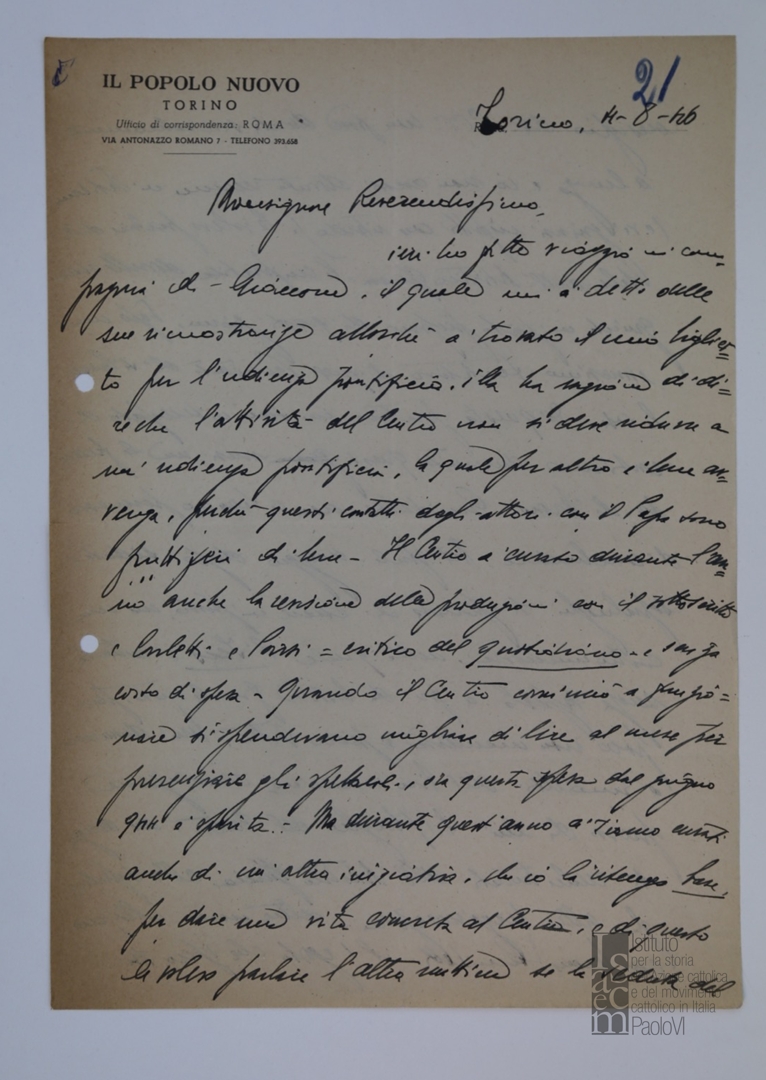 21
IL POPOLO NUOVO
TORINO
Ufficio di corrispondenza: ROMA
VIA ANTONAZZO ROMANO 7 - TELEFONO 393.658
Torino, 4-8-46
Monsignore Reverendissimo,
ieri ho fatto viaggio in com=
pagnia di Giaccone, il quale mi à detto delle
sue rimostranze allorché à trovato il mio bigliet=
to per l'udienza pontificia. Ella ha ragione di di=
re che l'attività del Centro non si deve ridurre a
un'udienza pontificia, la quale per altro è bene av=
venga, perché questi contatti degli attori con il Papa sono
fruttiferi di bene - Il Centro à curato durante l'an=
no anche la revisione delle produzioni con il sottoscritto
e e = critico del quotidiano - e senza
costo di spesa - Quando il Centro cominciò a funzio=
nare si spendevano migliaia di lire al mese per
presenziare gli spettacoli, ora questa spesa dal giugno
944 è sparita. - Ma durante quest'anno ci siamo curati
anche di un'altra iniziativa, che io la ritengo base,
per dare una vita concreta al Centro, e di questo
le volevo parlare l'altra mattina se la seduta del
Istituto
per la storia
dell'Azione cattolica
e del movimento
cattolico in Italia
PaoloVI
Isacem